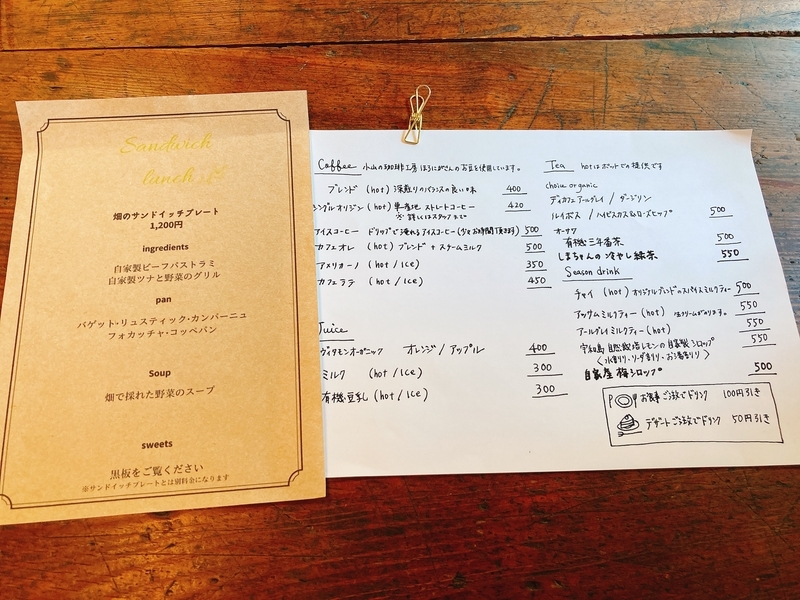 Sandwich
lunch
畑のサンドイッチプレート
1,200円
ingredients
自家製ビーフパストラミ
自家製ツナと野菜のグリル
pan
バゲット・リュスティック・カンパーニュ
フォカッチャ・コッペパン
Soup
畑で採れた野菜のスープ
sweets
黒板をご覧ください
※サンドイッチプレートとは別料金になります
Coffee 小山の珈琲工房 ほろにがさんのお豆を使用しています。
ブレンド (hot) 深煎りのバランスの良い味 400
シングルオリジン (hot) 単一産地 ストレートコーヒー 420
※詳しくはスタッフまで
アイスコーヒー ドリップで淹れるアイスコーヒー(少々お時間頂きます) 500
カフェオレ (hot) ブレンド + スチームミルク 500
アメリカーノ (hot / Ice) 350
カフェラテ (hot / Ice) 450
Juice
ヴィタモンオーガニック オレンジ / アップル 400
ミルク (hot / Ice) 300
有機豆乳 (hot / Ice) 300
Tea hotはポットでの提供です
choice organic
ディカフェアールグレイ / ダージリン
ルイボス / ハイビスカス&ローズヒップ 500
オーサワ
有機三年番茶 500
しまちゃんの冷やし緑茶 550
Season drink
チャイ (hot) オリジナルブレンドのスパイスミルクティー 500
アッサムミルクティー (hot) 生クリームがのります。 550
アールグレイミルクティー (hot) 550
宇和島 自然栽培レモンの自家製シロップ 550
〈水割り・ソーダ割り・お湯割り〉
自家産 梅シロップ 500
お食事ご注文でドリンク 100円引き
デザートご注文でドリンク 50円引き